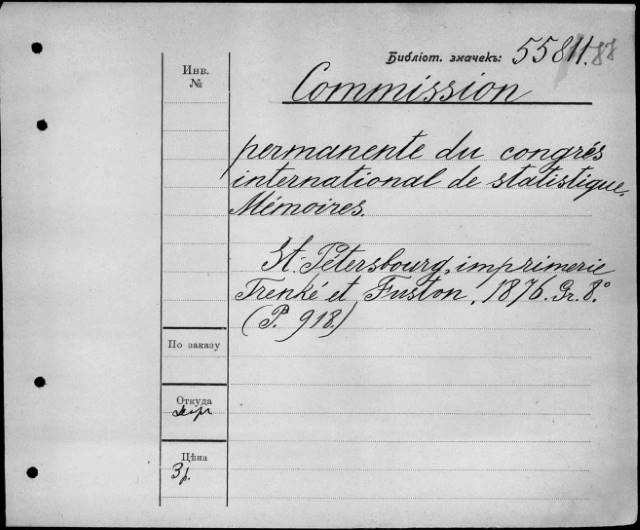 Библіот. значекъ: 55811.
Инв.
№
Commission
permanente du congrés
international de statistique.
Mémoires.
St. Pétersbourg, imprimerie
Trenké et Fuston, 1876. Gr. 8.°
(P. 918.)
По заказу
Откуда
Цѣна
3 р.